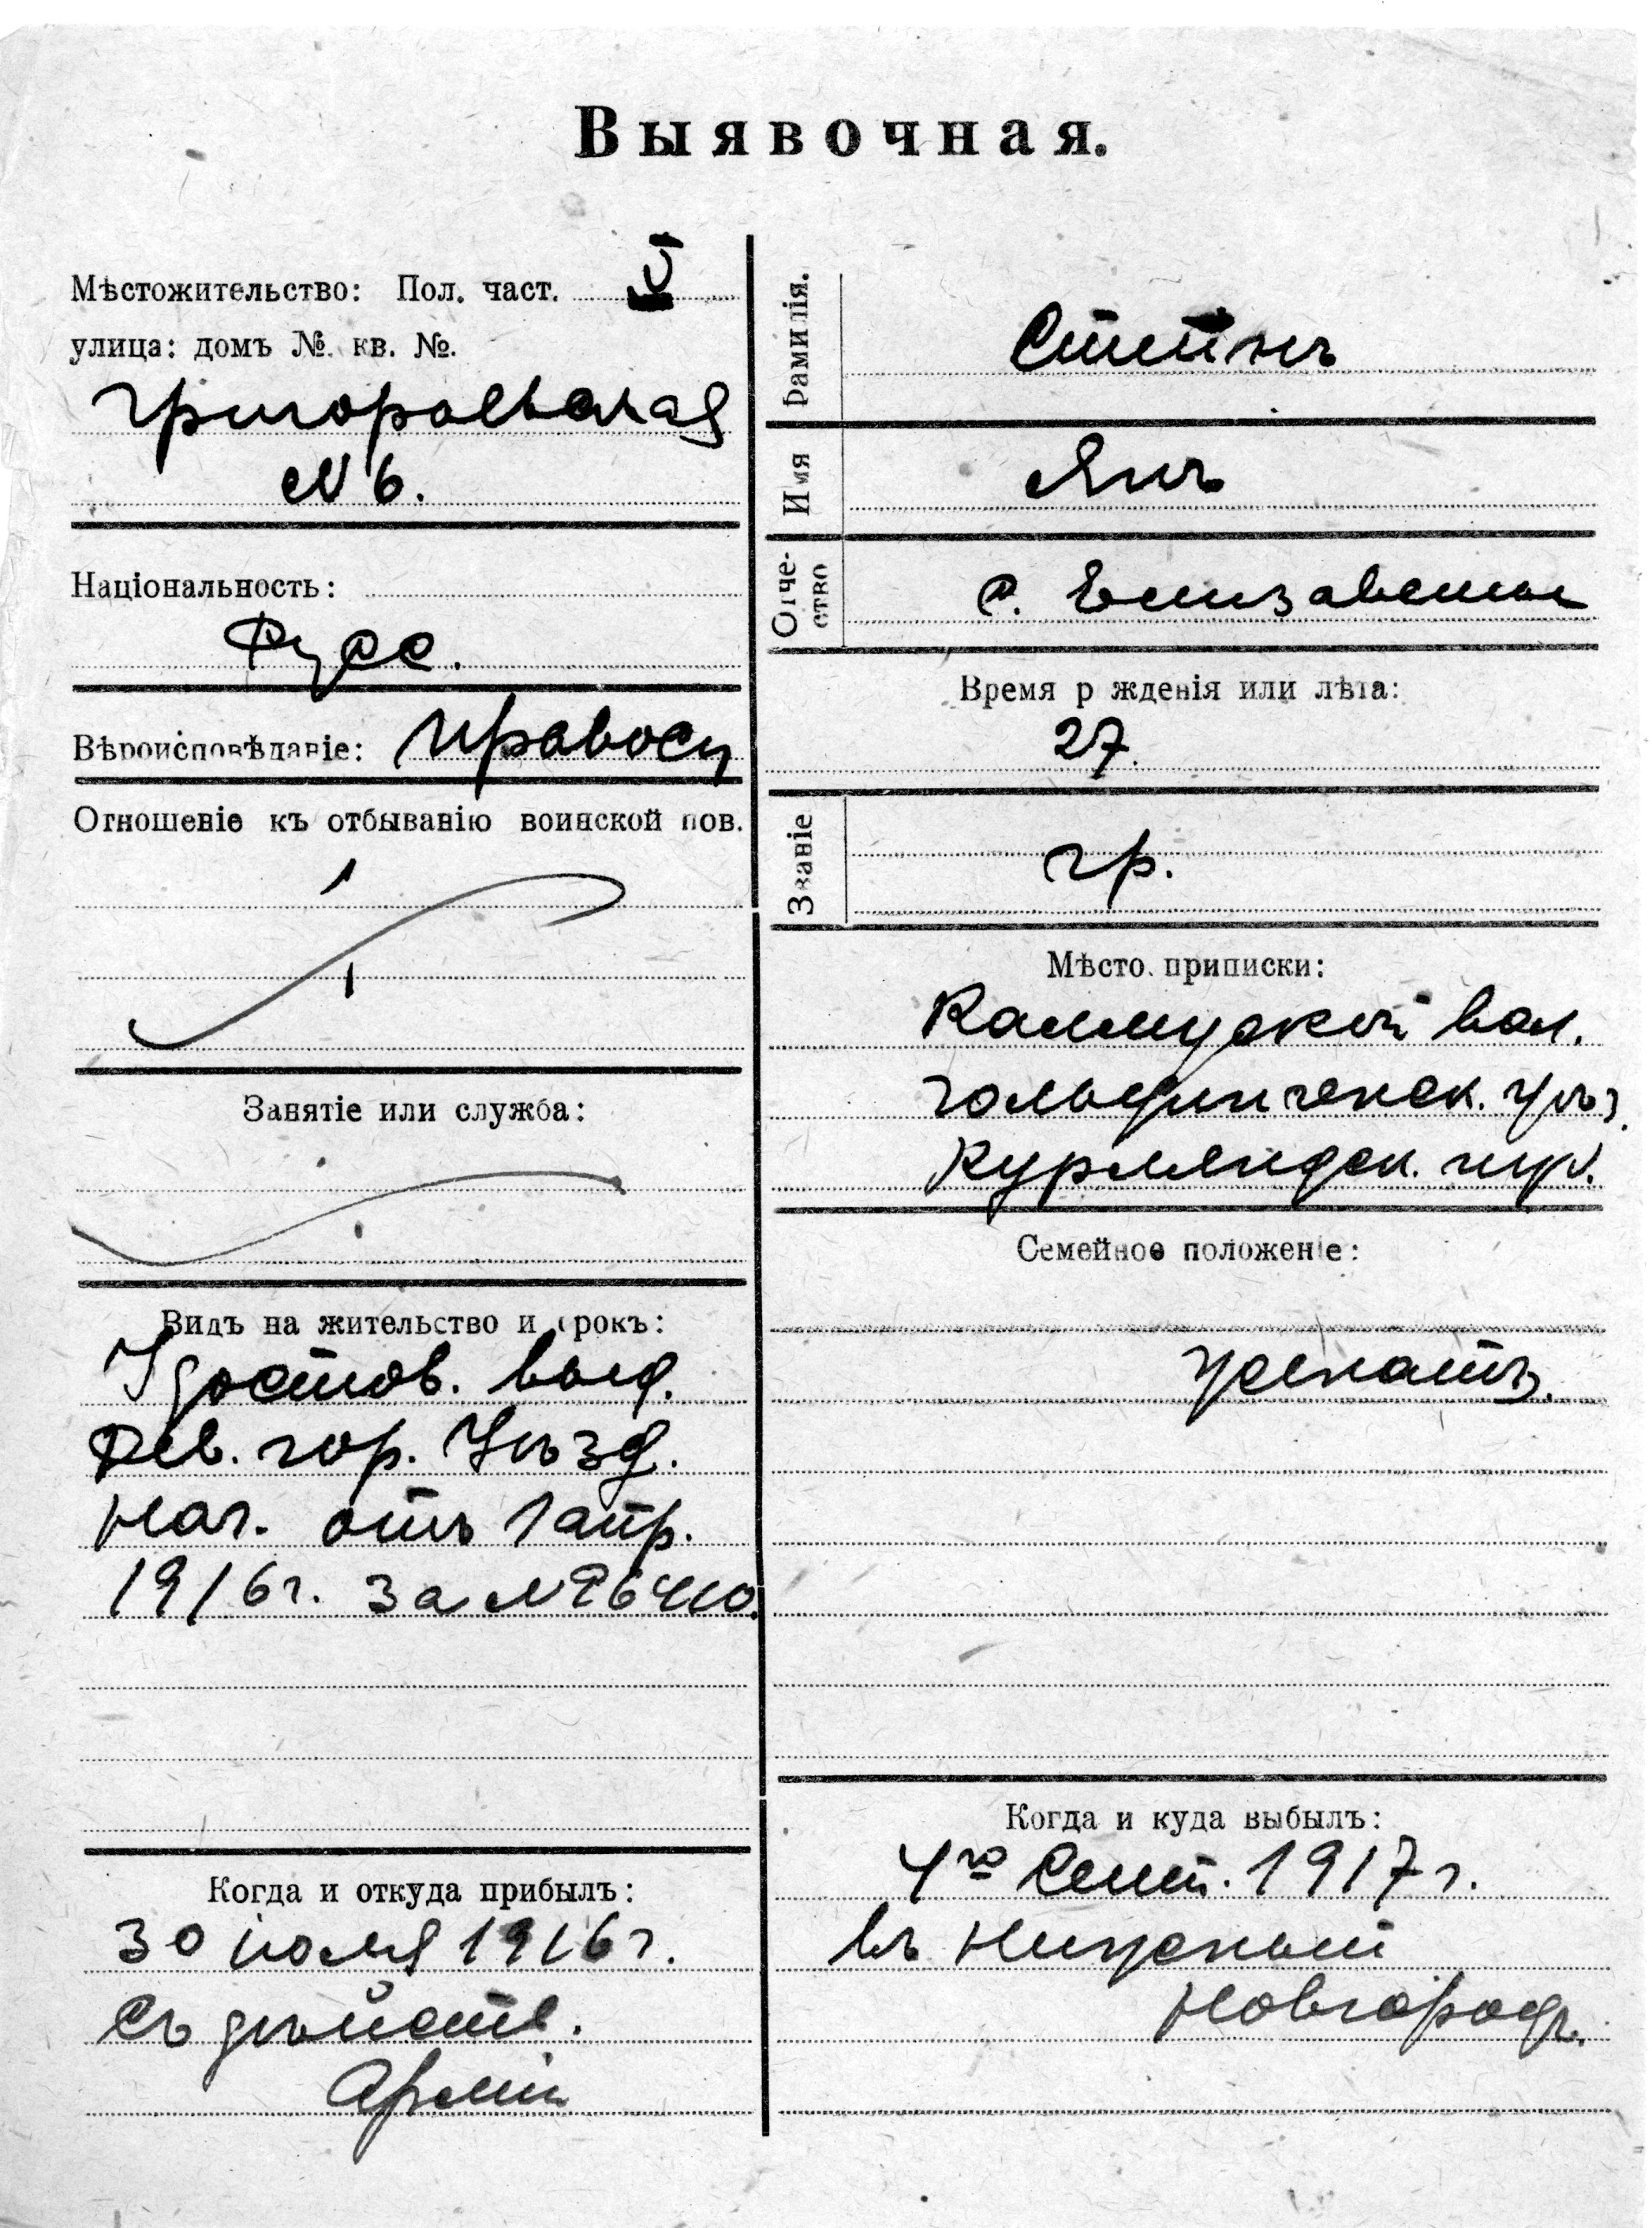 Выявочная.
Мѣстожительство: Пол. част. V
улица: домъ №. кв. №.
Григорьевская
№ 6.
Національность:
Русс.
Вѣроисповѣданіе: Правосл
Отношеніе къ отбыванію воинской пов.
Занятіе или служба:
Видъ на жительство и срокъ:
Удостов. выд.
Рев. гор. Уѣзд.
Нач. отъ 1 апр.
1916 г. за №
Когда и откуда прибылъ:
30 іюля 1916 г.
Съ дѣйств.
Арміи
Фамилія.
Янъ
Имя
Отче-
ство
с. Елизаветы
Время рожденія или лѣта:
27.
Званіе
гр.
Мѣсто приписки:
вол.
Гольдингенск. уѣз.
Курляндск. губ.
Семейное положеніе:
женатъ.
Когда и куда выбылъ:
4го Сент. 1917 г.
въ Нижний
Новгородъ.